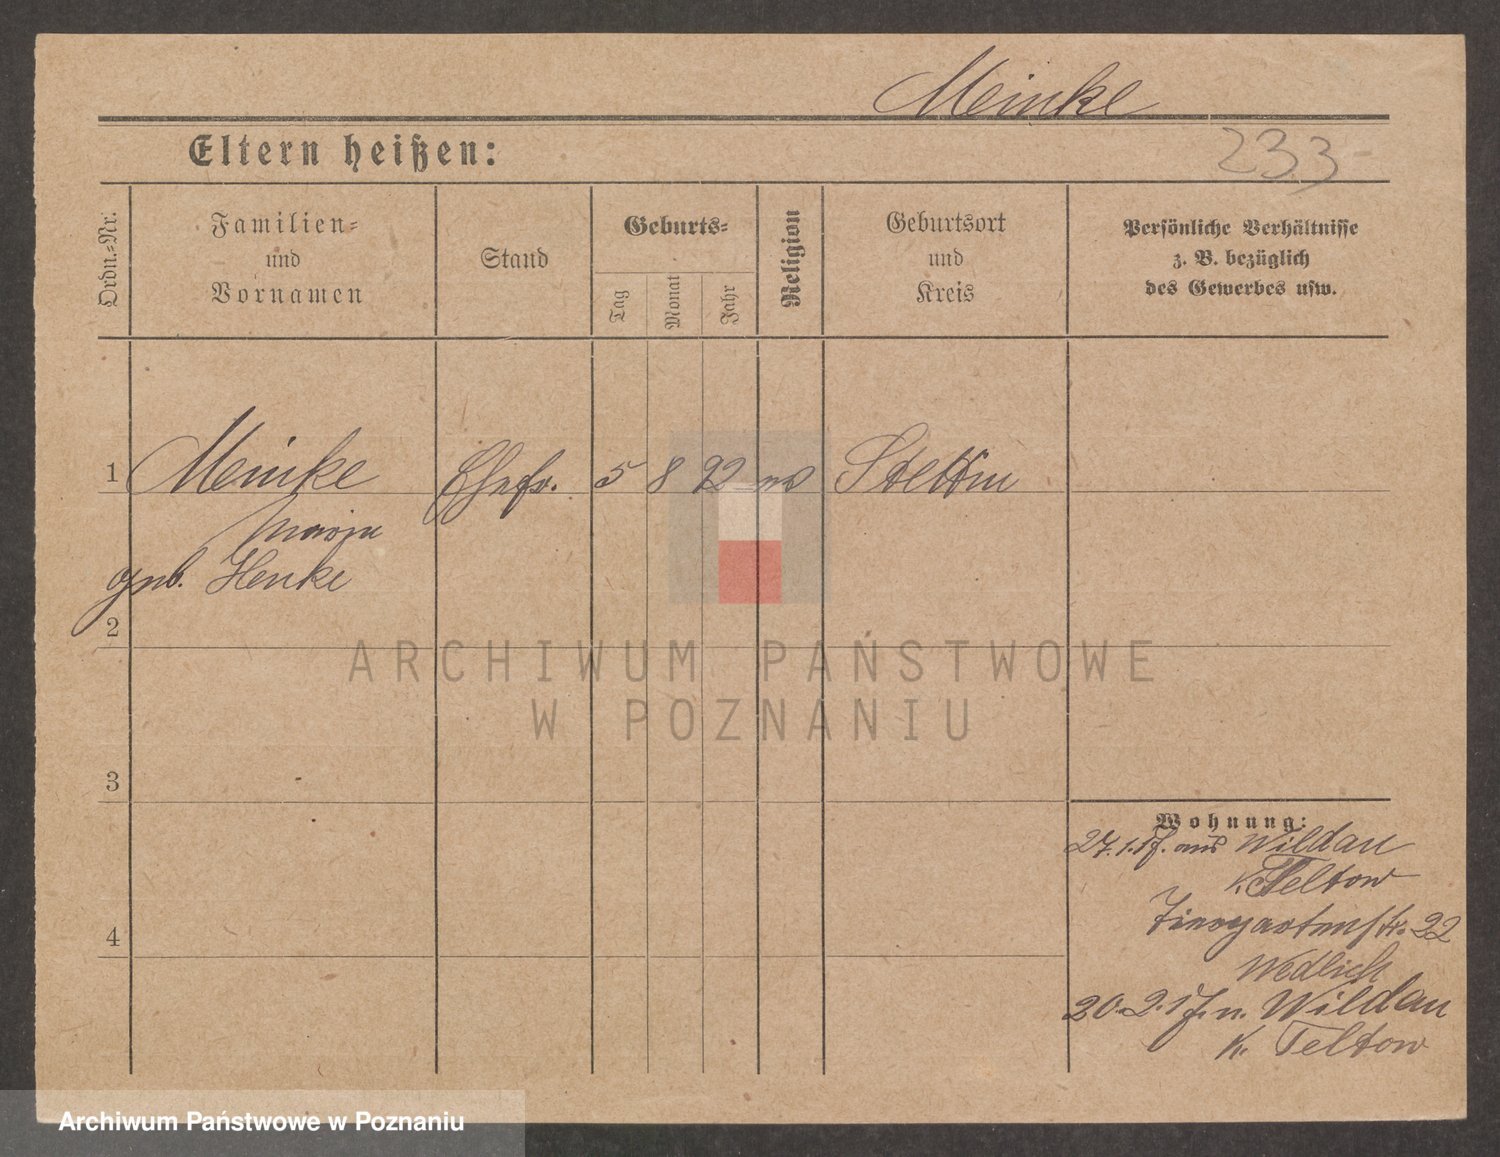 Meinke
Eltern heißen:
233
Ordn.-Nr.
Familien-
und
Vornamen
Stand
Geburts-
Tag
Monat
Jahr
Religion
Geburtsort
und
Kreis
Persönliche Verhältnisse
z. B. bezüglich
des Gewerbes usw.
1 Meinke Ehefr. 5 8 92 Stettin
Maria
geb. Henke
2
3
4
Wohnung:
27.1.17. aus Wildau
K. Teltow
Tiergartenstr. 22
Wedlich
20.2.17. n. Wildau
K. Teltow
ARCHIWUM PAŃSTWOWE
W POZNANIU
Archiwum Państwowe w Poznaniu